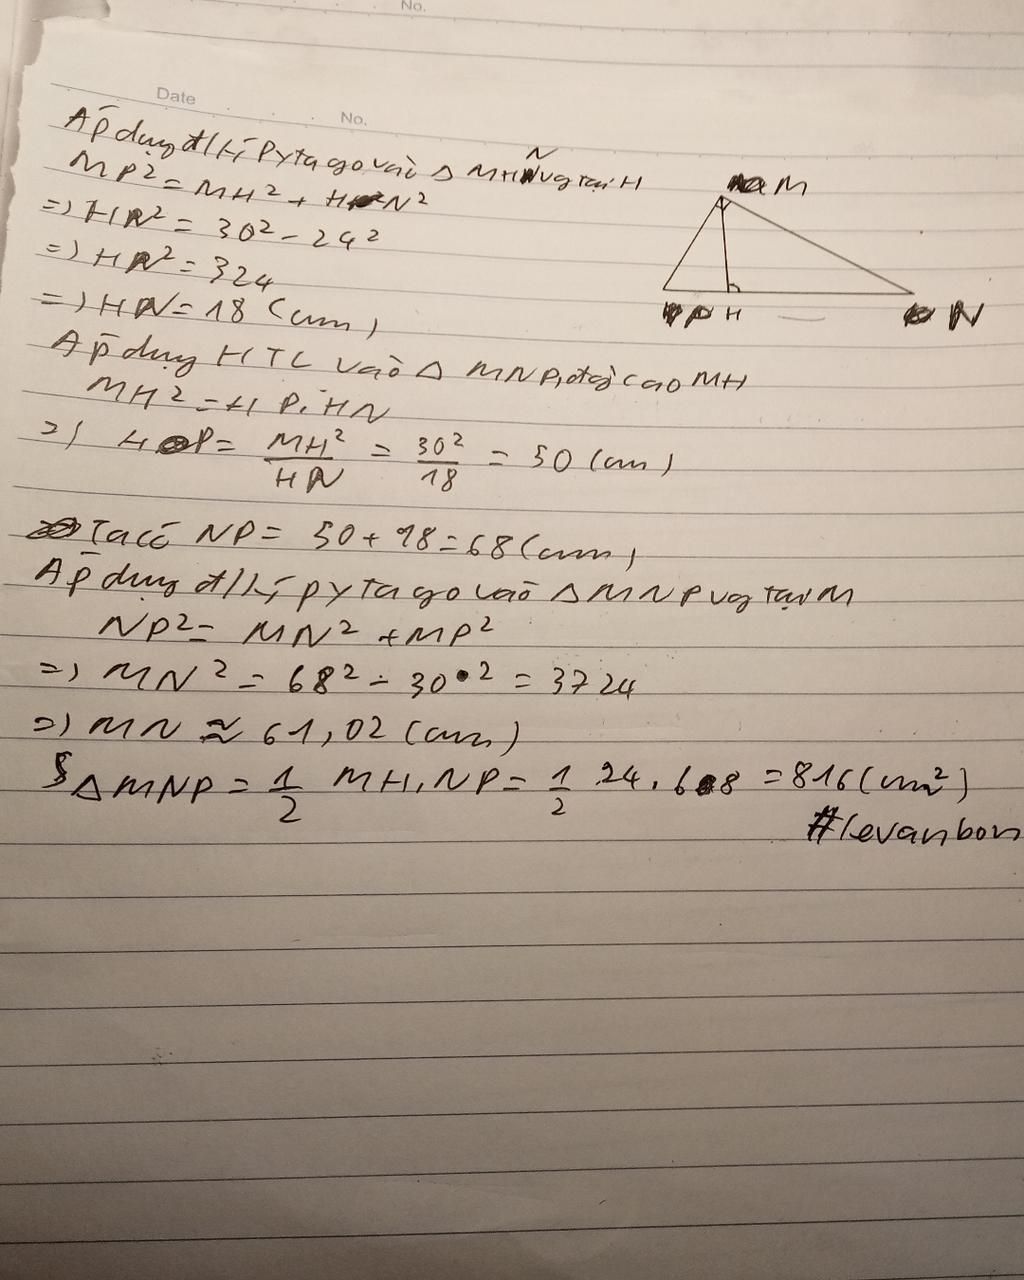 No.
Date
No.
Áp dụng đ/lí Pytago vào Δ MHN vg tại H
N
MP² = MH² + HN²
=> HN² = 30² - 24²
=> HN² = 324
=> HN = 18 (cm)
Áp dụng HTL vào Δ MNP, đg cao MH
MH² = HP.HN
=> HP = MH²/HN = 30²/18 = 50 (cm)
Ta có NP = 50 + 18 = 68 (cm)
Áp dụng đ/lí pytago vào Δ MNP vg tại M
NP² = MN² + MP²
=> MN² = 68² - 30² = 3724
=> MN ≈ 61,02 (cm)
SΔMNP = 1/2 MH.NP = 1/2 24.68 = 816 (cm²)
#levanbon
M
P H N